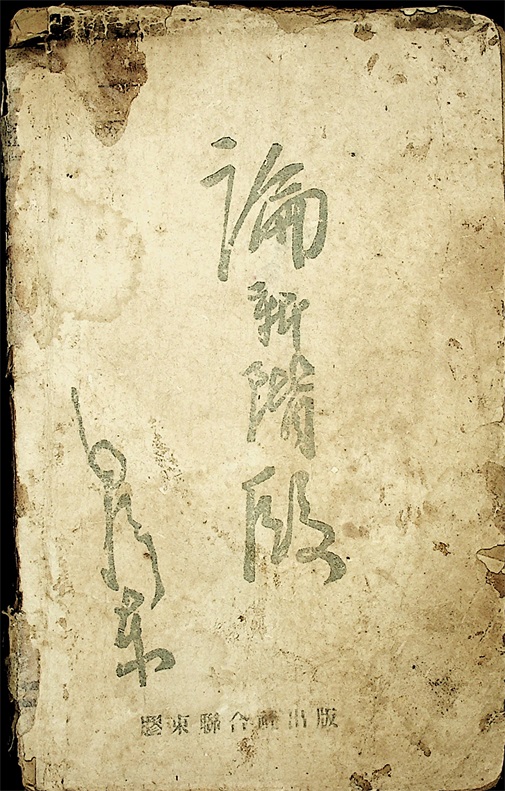 論新階段
毛澤东
膠東聯合社出版